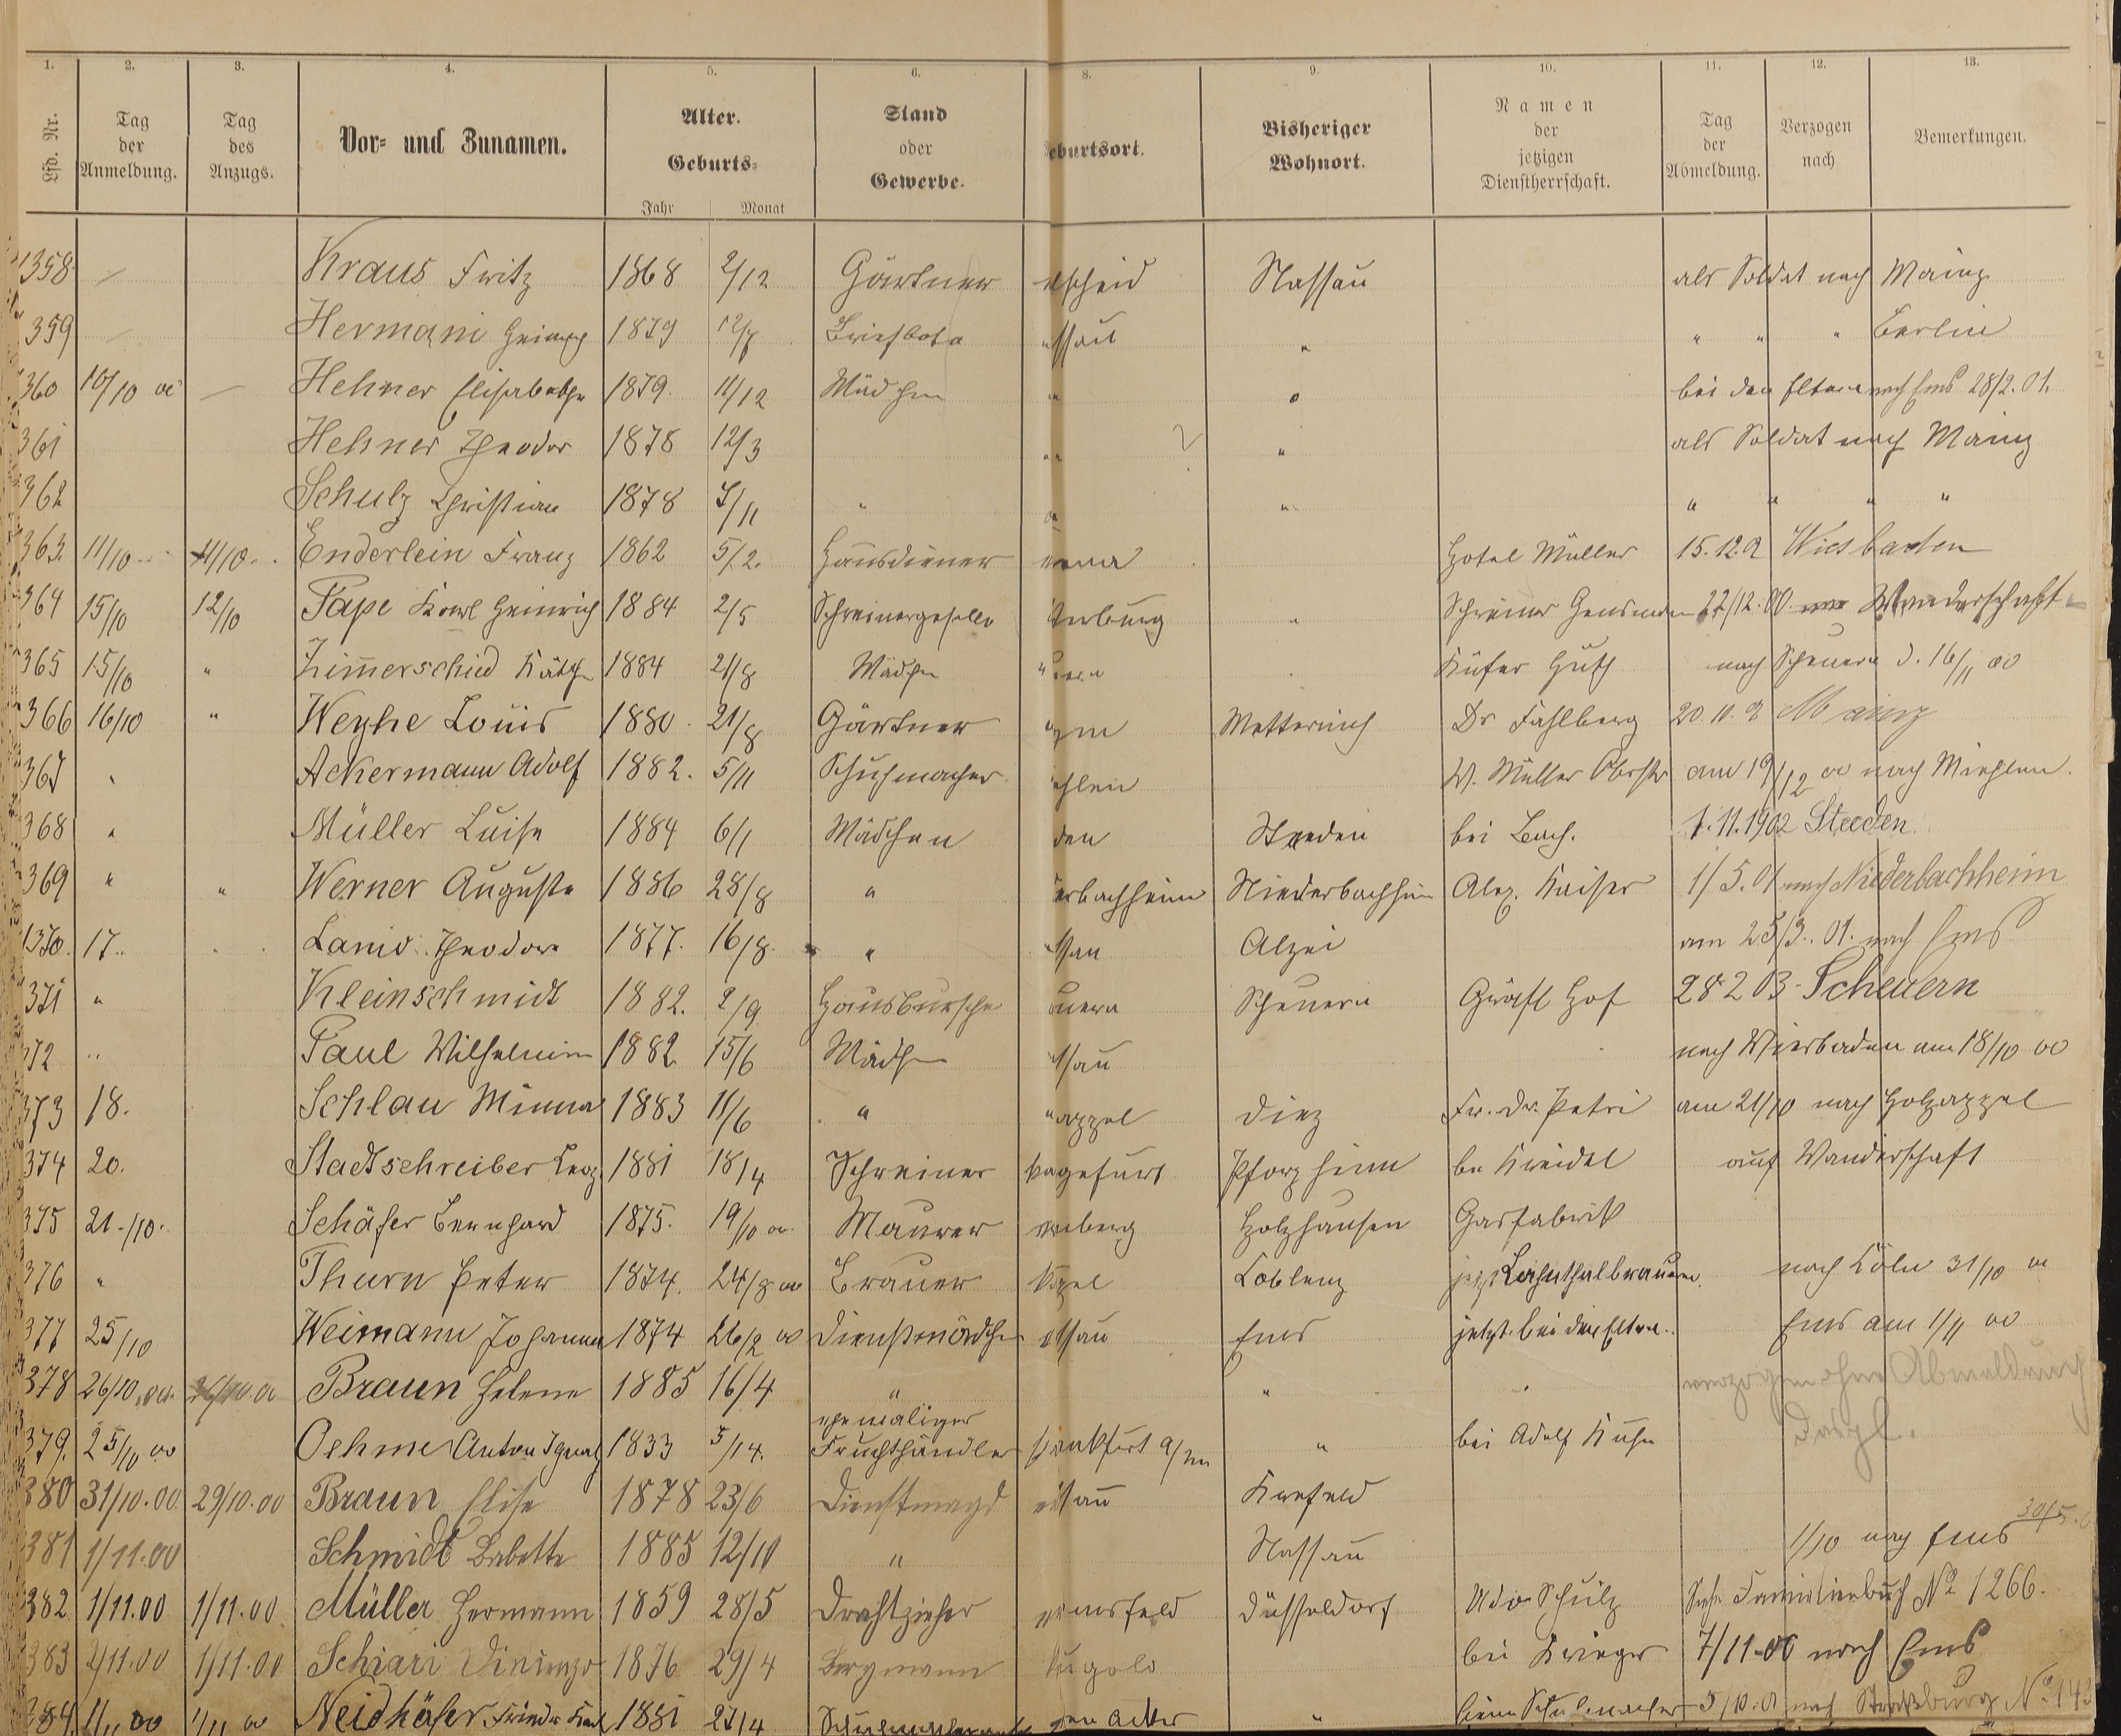 1. 2. 3. 4. 5. 6. 8. 9. 10. 11. 12. 13.
Lfd. Nr. Tag der Anmeldung. Tag des Anzugs. Vor- und Zunamen. Alter. Geburts- Jahr Monat Stand oder Gewerbe. eburtsort. Bisheriger Wohnort. Namen der jetzigen Dienstherrschaft. Tag der Abmeldung. Verzogen nach Bemerkungen.
1358 Kraus Fritz 1868 2/12 Gärtner elscheid Nassau als Soldat nach Mainz
359 Hermani 1879 12/7 Briefbote ssau " " " " Berlin
360 10/10 Hehner Elisabethe 1879. 11/12 Mädchen " bei den Eltern nach Ems 28/2.01.
361 Hehner Theodor 1878 12/3 " als Soldat nach Mainz
362 Schulz Christian 1878 7/11 " " " " " "
363. 11/10 11/10 Enderlein Franz 1862 5/2. Hausdiener Hotel Müller 15.12.0 Wiesbaden
364 15/10 12/10 Pape Karl Heinrich 1884 2/5 Schreinergeselle terburg " Schreiner 22/12.00. Wanderschaft
365 15/10 " Zimerschied Käthe 1884 21/8 Mädchen Küfer Guth nach Scheuern d. 16/11 00
366 16/10 " Weyhe Louis 1880 21/8 Gärtner Metternich Dr Fahlberg 20.11.0 Mainz
367 " Ackermann Adolf 1882. 5/11 Schuhmacher ehlen W. Müller Obstr am 19/12 00 nach Miehlen.
368 " Müller Luise 1884 6/1 Mädchen den Steeden bei Bach. 1.11.1902 Steeden
369 " " Werner Auguste 1886 28/8 " erbachheim Niederbachheim Alex. Kaiser 1/5.01 nach Niederbachheim
1370. 17.. Theodore 1877. 16/8. " ssau Alzei am 25/3.01. nach Ems
371 " Kleinschmidt 1882. 2/9 Hausbursche uern Scheuern Gräfl Hof 28 2 03 Scheuern
372 " Paul Wilhelmine 1882 15/6 Mädchen ssau nach Wiesbaden am 18/10 00
373 18. Schlau Minna 1883 11/6 " appel Diez Fr. Dr. Petri am 21/10 nach Holzappel
374 20. Stadtschreiber 1881 18/4 Schreiner agefurt Pforzheim bei Kreidel auf Wanderschaft
375 21./10. Schäfer Bernhard 1875. 19/10 00 Maurer enberg Holzhausen Gasfabrik
376 " Thurn Peter 1874. 24/8 00 Brauer Coblenz jetzt Lahnthalbrauerei nach Cöln 31/10 00
377 25/10 Weimann Johanna 1874 26/2 00 Dienstmädchen ssau Ems jetzt bei den Eltern. Ems am 1/11 00
378 26/10.00. 26/10.00 Braun Helene 1885 16/4 " " verzogen ohne Abmeldung
379. 25/10 00 Oehme Anton Ignatz 1833 5/14. ehemaliger Fruchthändler Frankfurt a/m " bei Adolf Kuhn Desgl.
380 31/10.00. 29/10.00 Braun Elise 1878 23/6 Dienstmagd ssau Krefeld
381 1/11.00 Schmidt Babette 1885 12/10 " Nassau 1/10 nach Ems 30/5.0
382 1/11.00 1/11.00 Müller Hermann 1859 28/5 Drahtzieher msfeld Düsseldorf Udo Schulz Siehe Familienbuch No 1266.
383 2/11.00 1/11.00 Schiari 1876 29/4 Bergmann bei Krieger 7/11.00 nach Ems
384. 1/11 00 1/11 00 Neidhäfer 1881 27/4 " Schuhmacher 5/10.0 nach Straßburg No. 143